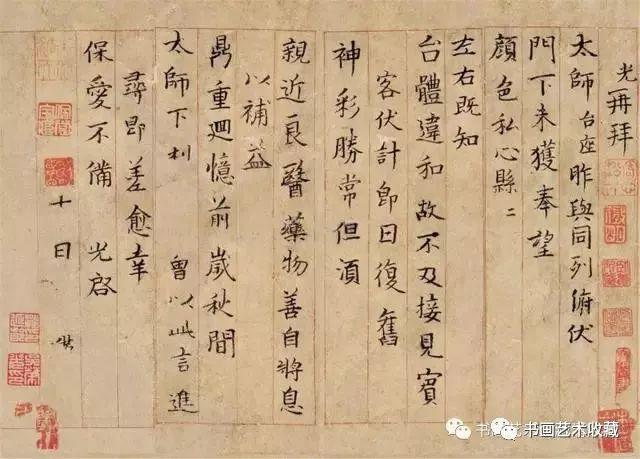 光再拜
太師台座昨與同列俯伏
門下未獲奉望
顔色私心縣〻
左右既知
台體違和故不及接見賓
客伏計即日復舊
神彩勝常但湏
親近良醫藥物善自將息
以補益
鼎重迴憶前嵗秋間
太師下利 曾以此言進
尋即差愈幸
保愛不備 光啓
十日
书画艺术收藏